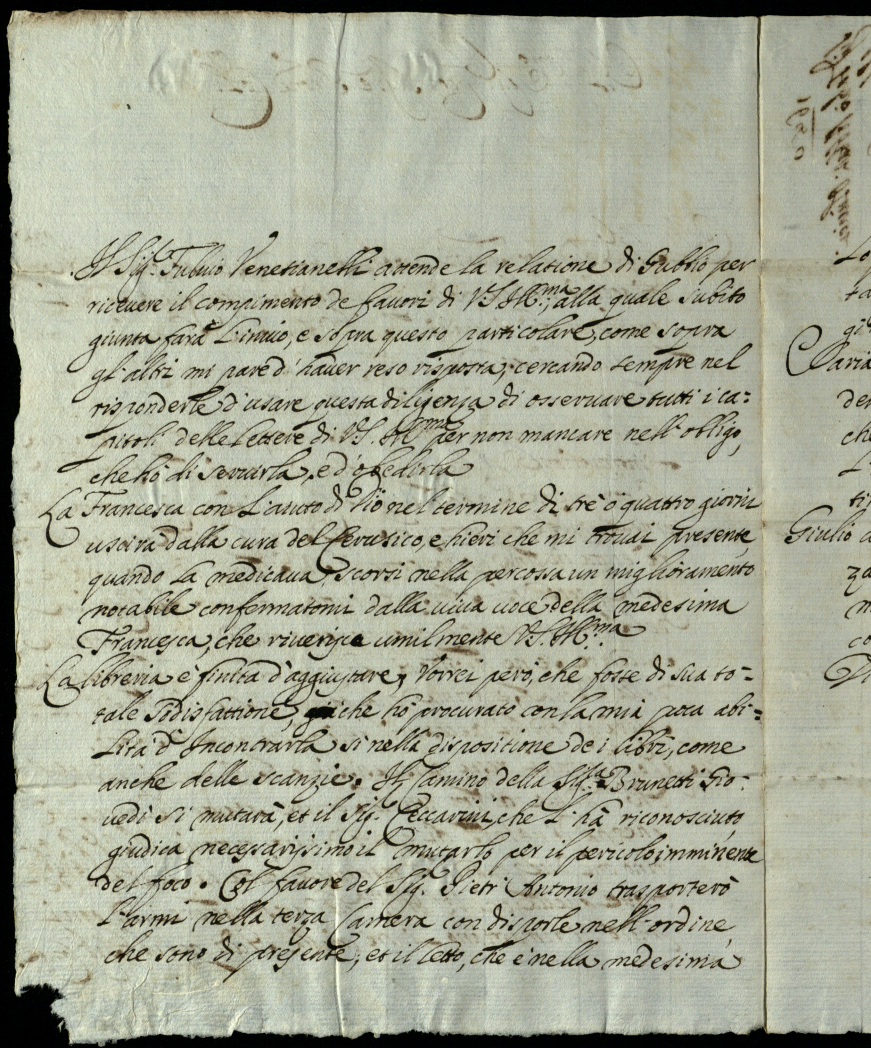 Il Sig.r Fulvio Venetianelli attende la relatione di Gubbio per
ricevere il compimento de favori di V.S. Ill.ma, alla quale subito
giunta farà l'invio, e sopra questo particolare, come sopra
gl'altri mi pare d'haver reso risposta, cercando sempre nel
risponderle d'usare questa diligenza di osservare tutti i ca=
pitoli delle lettere di V.S. Ill.ma per non mancare nell'obligo,
che hò di servirla, e d'obedirla
La Francesca con l'aiuto di Dio nel termine di trè ò quattro giorni
uscirà dalla cura del Cerusico, e hieri che mi trovai presente,
quando la medicava, scorsi nella percossa un miglioramento
notabile confermatomi dalla viva voce della medesima
Francesca, che riverisce umilmente V.S. Ill.ma
La libreria è finita d'aggiustare, Vorrei però, che fosse di sua to=
tale sodisfattione, che hò procurato con la mia poca abi=
lità d'Incontrarla si nella dispositione de i libri, come
anche delle scanzie. Il Camino della Sig.ra Brunetti Gio=
vedi si mutarà, et il Sig.r Ceccarini, che l'hà riconosciuto
giudica necessarissimo il mutarlo per il pericolo imminente
del foco. Col favore del Sig.r Pietr'Antonio trasporterò
l'armi nella terza Camera con disporle nell'ordine,
che sono di presente, et il letto, che è nella medesima
1680
Lo
ta
gi
Caria
den
che
L'
ti
Giulio a
za
m
co